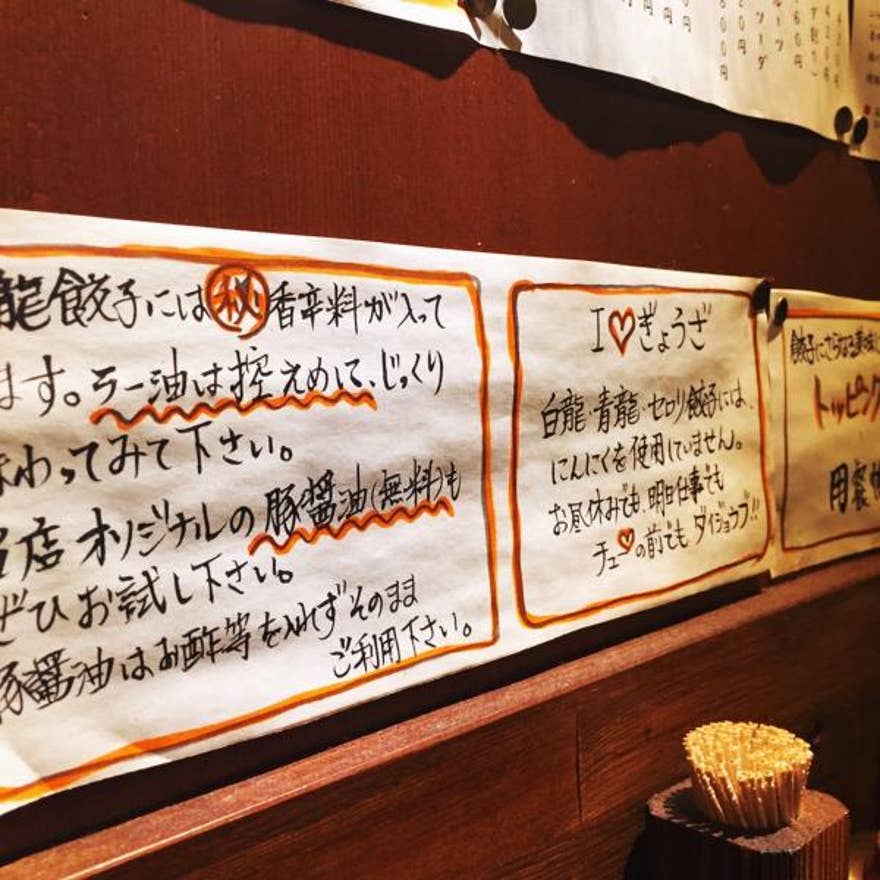 龍餃子には㊙香辛料が入って
ます。ラー油は控えめに、じっくり
味わってみて下さい。
当店オリジナルの豚醤油(無料)も
ぜひお試し下さい。
豚醤油はお酢等を入れずそのまま
ご利用下さい。
I♡ぎょうざ
白龍・青龍・セロリ餃子には、
にんにくを使用していません。
お昼休みでも、明日仕事でも
チュー♡の前でもダイジョウブ!!
餃子にさらなる
トッピング
用意